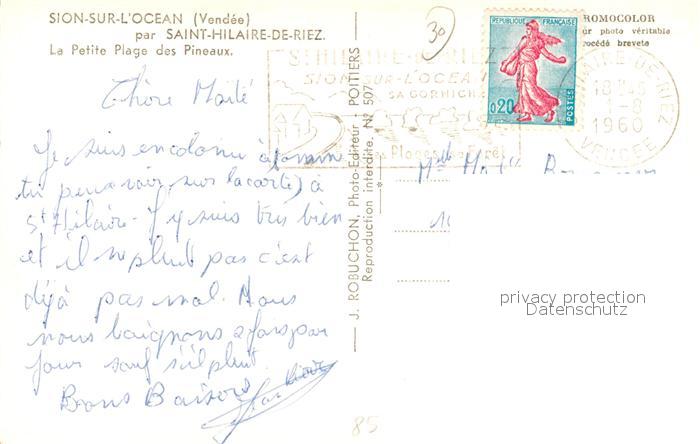 SION-SUR-L'OCEAN (Vendée)
par SAINT-HILAIRE-DE-RIEZ.
La Petite Plage des Pineaux.
30
Chère Maïté
Je suis en colonie à (comme
tu peux voir sur la carte) à
St Hilaire. J'y suis très bien
et il ne pleut pas c'est
déjà pas mal. Nous
nous baignons 2 fois par
jour sauf s'il pleut.
Bons Baisers
J. ROBUCHON, Photo-Editeur - POITIERS
Reproduction interdite. N° 507
ST HILAIRE-DE-RIEZ
SION-SUR-L'OCEAN
SA CORNICHE
Plages Forêt
REPUBLIQUE FRANÇAISE
0,20
POSTES
ROMOCOLOR
ur photo véritable
rocédé breveté
HILAIRE-DE-RIEZ
18H45
1-8
1960
VENDEE
Melle
privacy protection
Datenschutz
85